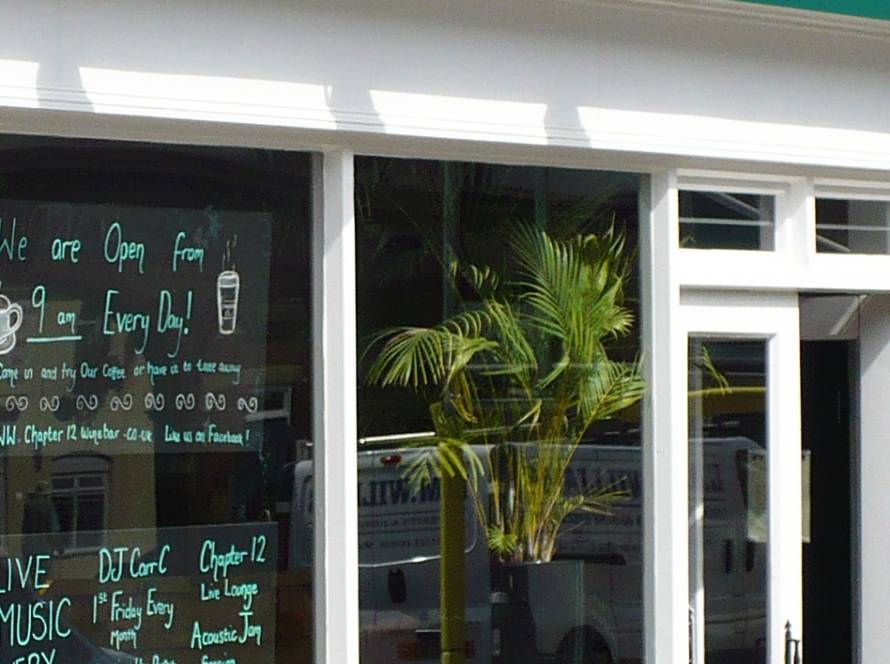 We are Open from
9 am Every Day!
Come in and try Our Coffee or have it to take away
WW. Chapter 12 winebar -co-uk Like us on Facebook!
LIVE
MUSIC
DJ CarrC
1st Friday Every
Month
Chapter 12
Live Lounge
Acoustic Jam
Session